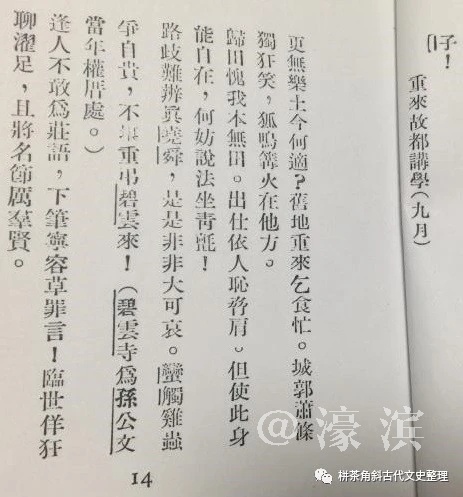 子！
重來故都講學(九月)
更無樂土今何適？舊地重來乞食忙。城郭蕭條
獨狂笑，狐鳴篝火在他方。
歸田愧我本無田。出仕依人恥脅肩。但使此身
能自在，何妨說法坐靑氈！
路歧難辨眞曉舜，是是非非大可哀。蠻觸雞蟲
爭自貴，不重弔碧雲來！(碧雲寺爲孫公文
當年權厝處。)
逢人不敢爲莊語，下筆寧容草罪言！臨世佯狂
聊濯足，且將名節厲羣賢。
14
@濠滨
栟茶角斜古代文史整理